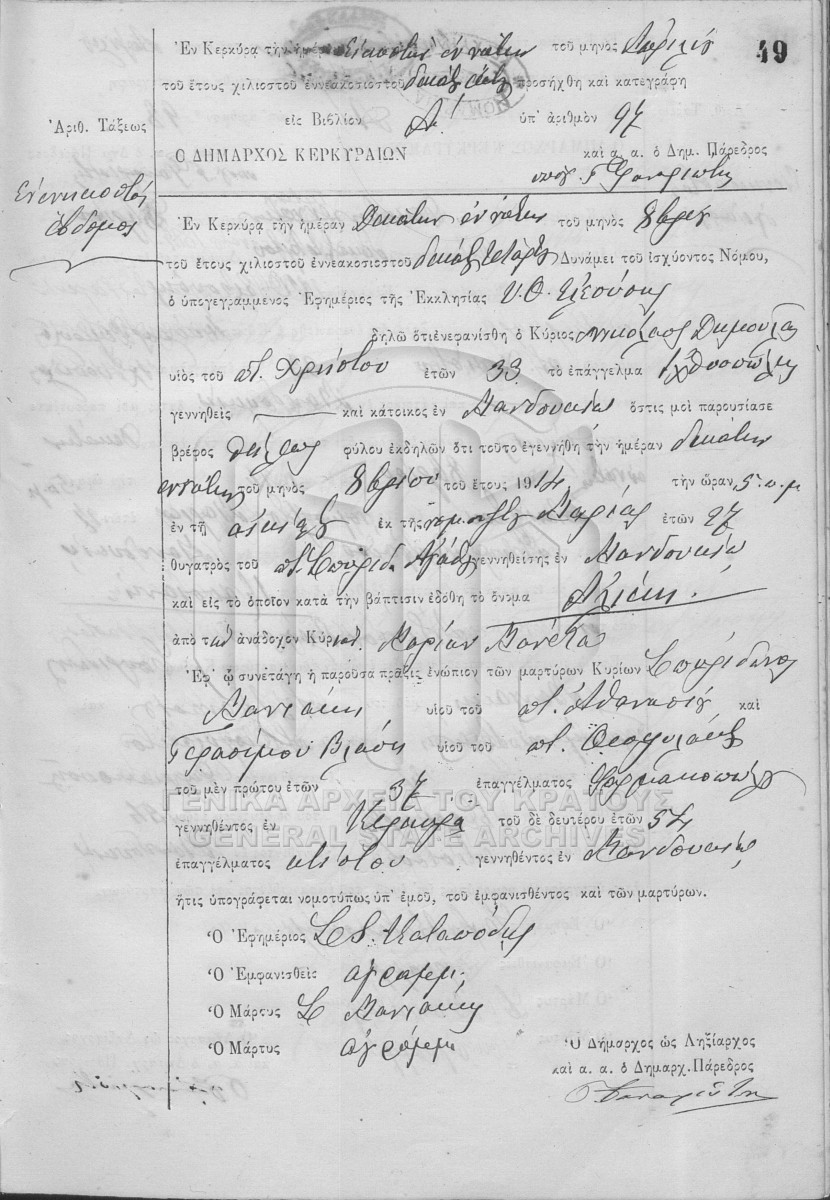 49
Ἐν Κερκύρᾳ τὴν ἡμέραν Εἰκοστὴν ἐννάτην τοῦ μηνὸς Ἀπριλίου
τοῦ ἔτους χιλιοστοῦ ἐννεακοσιοστοῦ προσήχθη καὶ κατεγράφη
εἰς Βιβλίον Α! ὑπ' ἀριθμὸν 97
Ἀριθ. Τάξεως
Ο ΔΗΜΑΡΧΟΣ ΚΕΡΚΥΡΑΙΩΝ καὶ ἀ. ἀ. ὁ Δημ. Πάρεδρος
Ἐννενηκοστὸς
ἕβδομος
Ἐν Κερκύρᾳ τὴν ἡμέραν Δεκάτην ἐννάτην τοῦ μηνὸς 8βρίου
τοῦ ἔτους χιλιοστοῦ ἐννεακοσιοστοῦ Δυνάμει τοῦ ἰσχύοντος Νόμου,
ὁ ὑπογεγραμμένος Ἐφημέριος τῆς Ἐκκλησίας Υ. Θ. Ἐλεούσης
δηλῶ ὅτι ἐνεφανίσθη ὁ Κύριος Νικόλαος Δημουλας
υἱὸς τοῦ ποτ. Χρήστου ἐτῶν 33 τὸ ἐπάγγελμα ἰχθυοπώλης
γεννηθεὶς — καὶ κάτοικος ἐν Μανδουκίῳ ὅστις μοὶ παρουσίασε
βρέφος θήλεος φύλου ἐκδηλῶν ὅτι τοῦτο ἐγεννήθη τὴν ἡμέραν δεκάτην
ἐννάτην τοῦ μηνὸς 8βρίου τοῦ ἔτους 1914 τὴν ὥραν 5. π. μ
ἐν τῇ οἰκίᾳ ἐκ τῆς Μαρίας ἐτῶν 27
θυγατρὸς τοῦ ποτ. Σπυρίδ. γεννηθείσης ἐν Μανδουκίῳ
καὶ εἰς τὸ ὁποῖον κατὰ τὴν βάπτισιν ἐδόθη τὸ ὄνομα
ἀπὸ τὴν ἀνάδοχον Κυρίαν Μαρίαν Μανέτα
Ἐφ' ᾧ συνετάγη ἡ παροῦσα πρᾶξις ἐνώπιον τῶν μαρτύρων Κυρίων Σπυρίδωνος
Μανιάκη υἱοῦ τοῦ ποτ. Ἀθανασίου καὶ
Γερασίμου Βλάση υἱοῦ τοῦ ποτ. Θεοφυλάκτου
τοῦ μὲν πρώτου ἐτῶν 37 ἐπαγγέλματος Φαρμακοποιοῦ
γεννηθέντος ἐν Κέρκυρα τοῦ δὲ δευτέρου ἐτῶν 54
ἐπαγγέλματος κτίστου γεννηθέντος ἐν Μανδουκίῳ
ἥτις ὑπογράφεται νομοτύπως ὑπ' ἐμοῦ, τοῦ ἐμφανισθέντος καὶ τῶν μαρτύρων.
Ὁ Ἐφημέριος Σ. Καταπόδης
Ὁ Ἐμφανισθεὶς ἀγράμμ.
Ὁ Μάρτυς Σ Μανιάκης
Ὁ Μάρτυς ἀγράμμ
Ὁ Δήμαρχος ὡς Ληξίαρχος
καὶ ἀ. ἀ. ὁ Δημαρχ. Πάρεδρος
ΓΕΝΙΚΑ ΑΡΧΕΙΑ ΤΟΥ ΚΡΑΤΟΥΣ
GENERAL STATE ARCHIVES